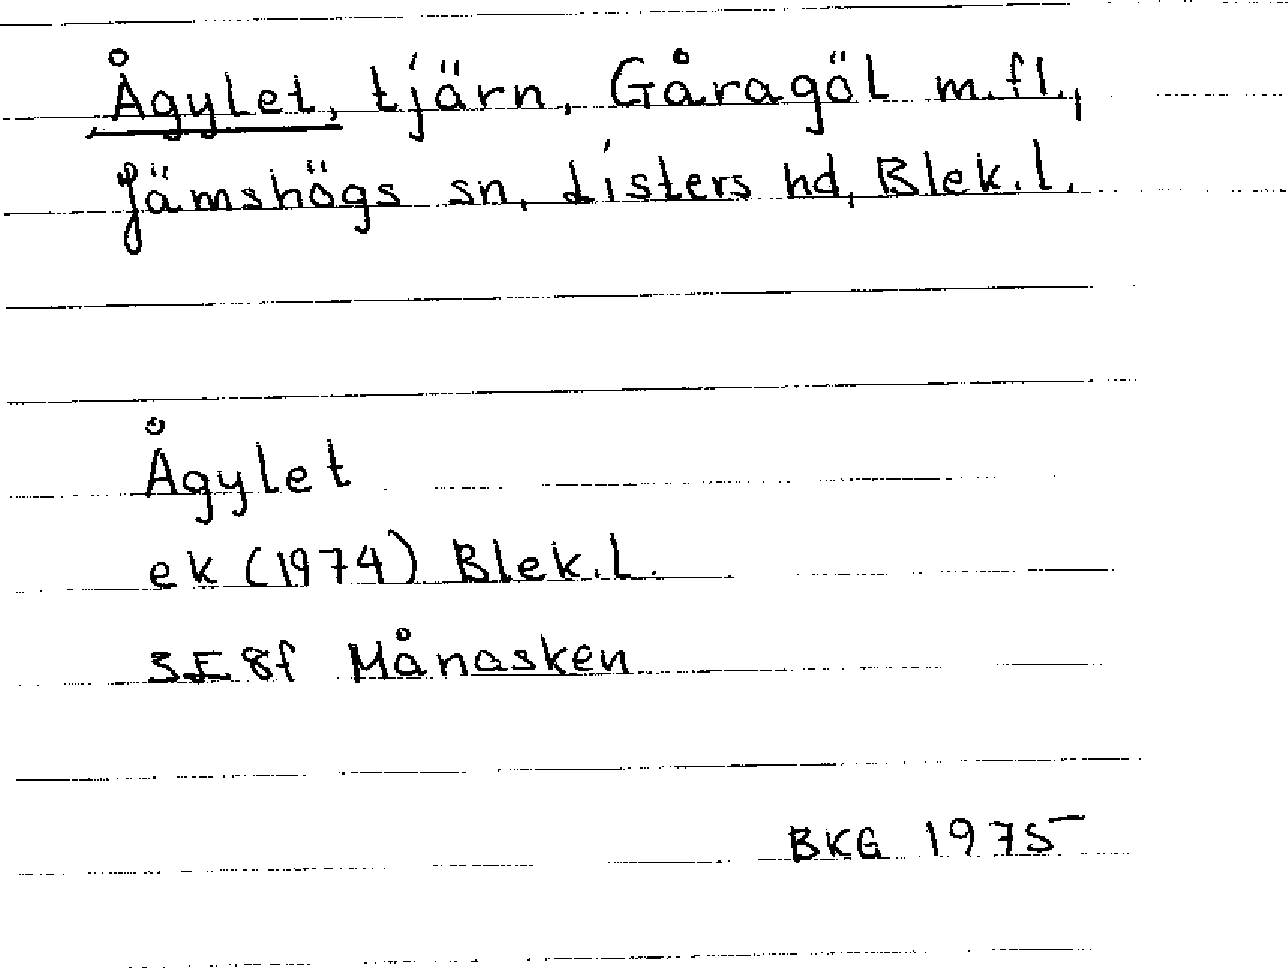 Ågylet, tjärn, Gåragöl m.fl.,
Jämshögs sn, Listers hd, Blek. l.
Ågylet
ek (1974) Blek. l.
3E8f Månasken
BKG 1975